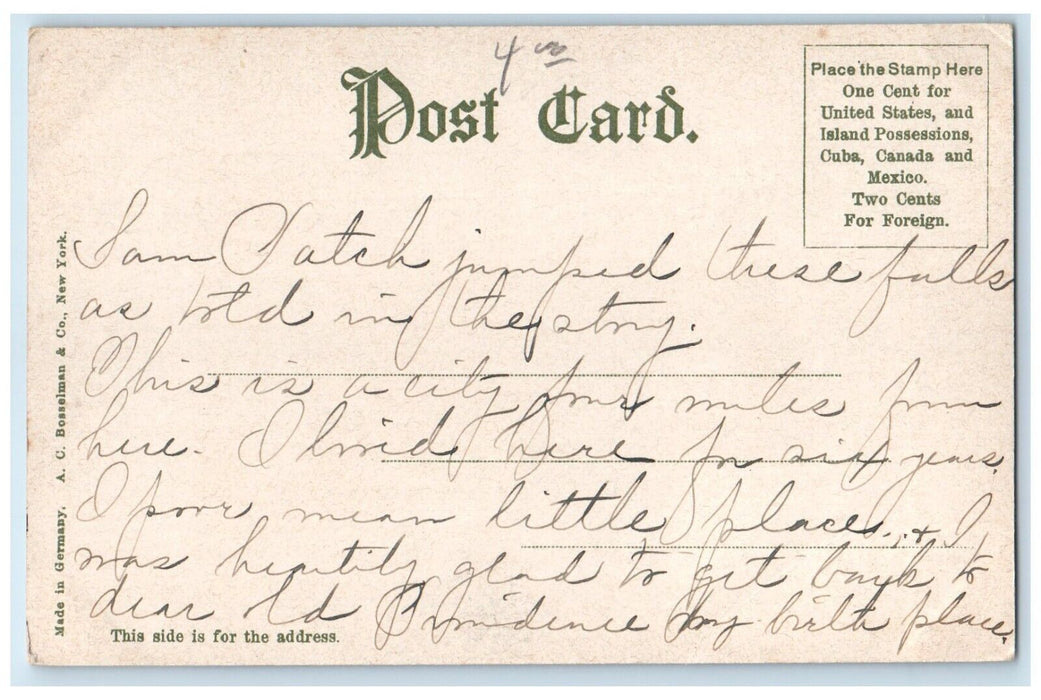 4 00
Post Card.
Place the Stamp Here
One Cent for
United States, and
Island Possessions,
Cuba, Canada and
Mexico.
Two Cents
For Foreign.
Sam Patch jumped these falls
as told in the story.
This is a city four miles from
here. I lived here for six years.
A poor mean little place, & I
was heartily glad to get back to
dear old Providence my birth place.
This side is for the address.
Made in Germany. A. C. Bosselman & Co., New York.